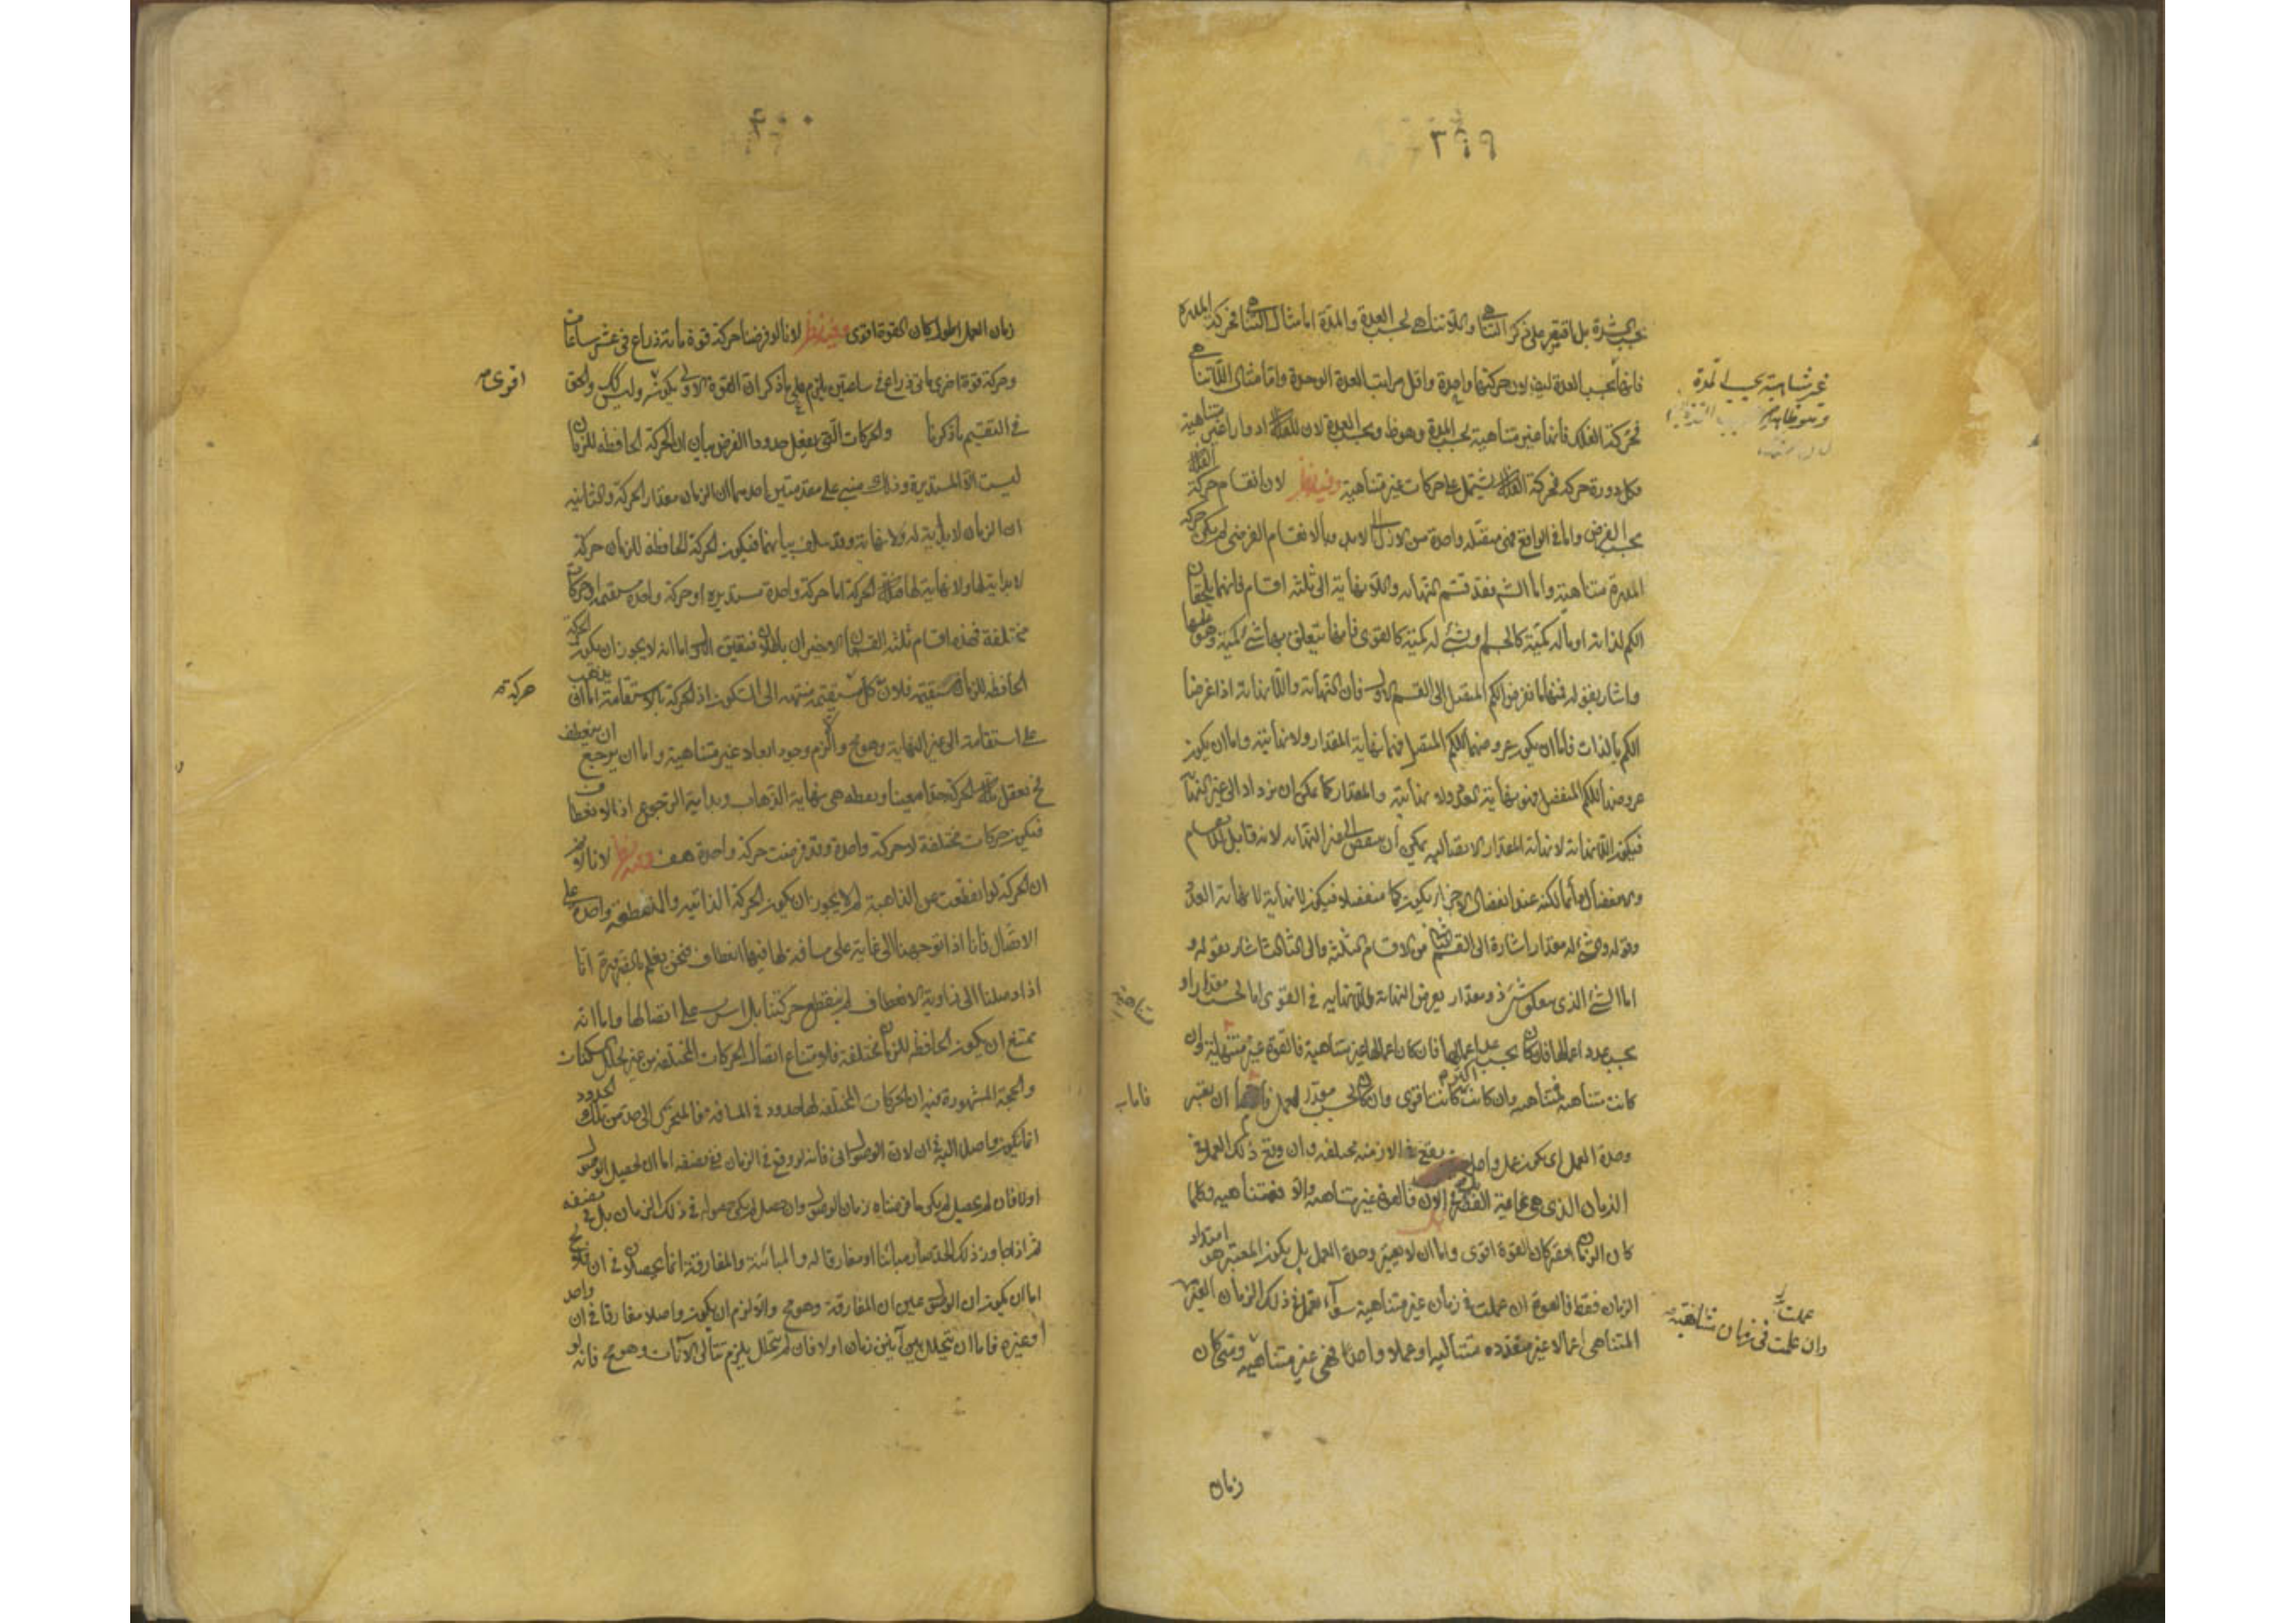 ٣٩٩
بحسب الشدة بل اقتصر على ذكر التناهي واللاتناهي بحسب العدة والمدة اما مثال التناهي فحركة المدرة
فانها بحسب العدة ايضا لان حركتها واحدة واقل مراتب العدة الوحدة واما مثال اللاتناهي
فحركة الفلك فانها غير متناهية بحسب المدة وهو ظ وبحسب العدة لان للفلك ادوارا غير متناهية
فكل دورة حركة فحركة الفلك يشتمل على حركات غير متناهية وفيه نظر لان انقسام حركة الفلك
بحسب الفرض واما في الواقع فهي متصلة واحدة من الازل الى الابد وبالانقسام الفرضي لم يكن حركة
المدرة متناهية واما الشيخ فقد قسم النهاية واللانهاية الى ثلثة اقسام فانهما يلحقان
الكم لذاته او ما له كمية كالجسم او شيء له كمية كالقوى فانها يتعلق بها شيء كمية وهو عملها
واشار بقوله فيهما نفرض الكم المتصل الى القسم الاول فان النهاية واللانهاية اذا عرضا
الكم بالذات فاما ان يكون عروضهما للكم المتصل فهما نهاية المقدار ولا نهايته واما ان يكون
عروضهما للكم المنفصل فهو نهاية العدد ولا نهايته والمقدار كما يمكن ان يزداد الى غير النهاية
فيكون اللانهاية لا نهاية المقدار الاتصالي يمكن ان ينقص الى غير النهاية لانه قابل للانقسام
والانفصال دائما لكنه عند انفصال الاجزاء يكون كما منفصلا فيكون اللانهاية لا نهاية العدد
وقوله والشيء له مقدار اشارة الى القسم الثاني من الاقسام الثلثة والى الثالث اشار بقوله و
اما الشيء الذي يتعلق بشيء ذو مقدار يعرض النهاية واللانهاية في القوى اما بحسب مقدار او
بحسب عدد اعمالها فان كان بحسب عدد اعمالها فان كان اعمالها غير متناهية فالقوة غير متناهية وان
كانت متناهية فمتناهية وان كانت اكثر كانت اقوى وان كان بحسب مقدار العمل فاما ان يعتبر
وحدة العمل اي يكون عمل واحد يقع في الازمنة مختلفة وان وقع ذلك العمل في
الزمان الذي في غاية القصر بل الآن فالقوة غير متناهية والا فمتناهية وكلما
كان الزمان اقصر كان القوة اقوى واما ان لا يعتبر وحدة العمل بل يكون المعتبر هو امتداد
الزمان فقط فالقوة ان عملت في زمان غير متناهية سواء عملت في ذلك الزمان الغير
المتناهي اعمالا غير متعدده متتالية او عملا واحدا فهي غير متناهية ومتى كان
زمان
غير متناهية بحسب المدة
وهو ظاهر
فاما ب
عملت
وان عملت في زمان متناهية
٤٠٠
زمان العمل اطول كان القوة اقوى وفيه نظر لانا لو فرضنا حركة قوة مائة ذراع في عشر ساعات
وحركة قوة اخرى مائتي ذراع في ساعتين يلزم على ما ذكر ان القوة الاولى يكون اشد وليس كك والحق
في التقسيم ما ذكرنا والحركات التي يفعل حدودا الغرض بيان ان الحركة الحافظة للزمان
ليست الا المستديرة وذلك مبني على مقدمتين احدهما ان الزمان مقدار الحركة والثانية
ان الزمان لا بداية له ولا نهاية وقد سلف بيانهما فيكون الحركة الحافظة للزمان حركة
لا بداية لها ولا نهاية لها فتلك الحركة اما حركة واحدة مستديرة او حركة واحدة مستقيمة او حركات
مختلفة فهذه اقسام ثلثة القسمان الاخيران باطلان فتعين الاول اما انه لا يجوز ان يكون الحركة
الحافظة للزمان مستقيمة فلان كل مستقيمة منتهية الى السكون اذ الحركة بالاستقامة اما ان يذهب
على استقامة الى غير النهاية وهو مح والا لزم وجود ابعاد غير متناهية واما ان يرجع او ينعطف
فح تفعل تلك الحركة حدا معينا ونقطة هي نهاية الذهاب وبداية الرجوع اذ الانعطاف
فيكون حركات مختلفة لا حركة واحدة وقد فرضت حركة واحدة هف وفيه نظر لانا لا نم
ان الحركة لو انعطفت عن الذاهبة لم لا يجوز ان يكون الحركة الذاتية والمنعطفة واحدة على
الاتصال فانا اذا توجهنا الى غاية على مسافة لها فيها انعطاف فنحن نعلم بالضرورة انا
اذا وصلنا الى زاوية الانعطاف لم ينقطع حركتنا بل استمرت على اتصالها واما انه
يمتنع ان يكون الحافظ للزمان مختلفة فلامتناع اتصال الحركات المختلفة من غير تخلل السكنات
والحجة المشهورة فيه ان الحركات المختلفة لها حدود في المسافة فالمتحرك الى حد من تلك الحدود
انما يكون واصلا اليه في ان لان الوصول اني فانه لو وقع في الزمان ففي نصفه اما ان يحصل الوصول
اولا فان لم يحصل لم يكن ما فرضناه زمان الوصول وان حصل لم يكن حصوله في ذلك الزمان بل في نصفه
ثم اذا جاوز ذلك الحد صار مباينا او مفارقا له والمباينة والمفارقة انما يحصلان في ان فلا يخ
اما ان يكون ان الوصول عين ان المفارقة وهو مح والا لزم ان يكون واصلا مفارقا في ان واحد
او غيره فاما ان يتخلل بين آنين زمان او لا فان لم يتخلل يلزم تتالي الآنات وهو مح فانه لو
اقوى م
حركة م